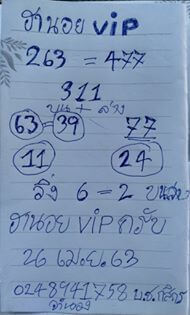 ฮานอย vip
263 = 477
311
บน + ล่าง
63 = 39 77
11 24
วิ่ง 6 = 2 บน
ฮานอย VIP ครับ
26 เม.ย. 63
0248941758 บ.ช. กสิกร